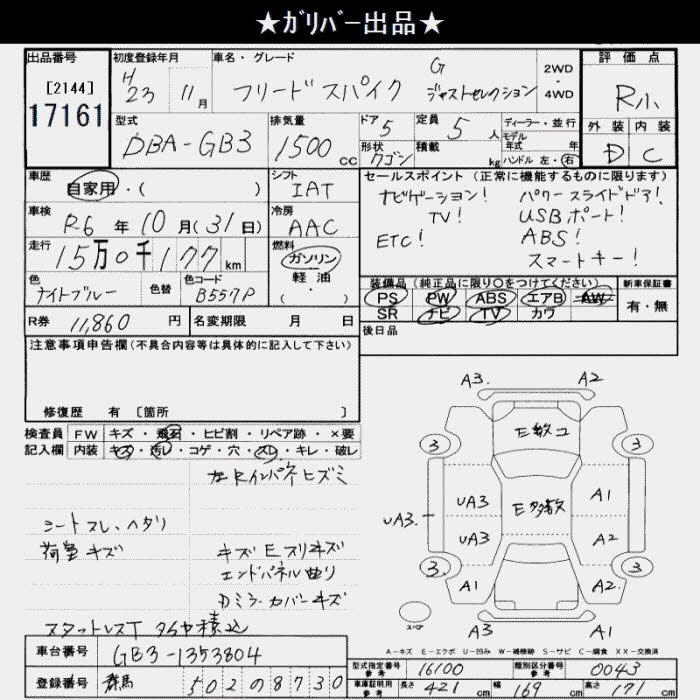 ★ガリバー出品★
出品番号 初度登録年月 車名・グレード 評価点
[2144] H 23 11月 フリードスパイク G ジャストセレクション 2WD・4WD R小
17161
型式 排気量 ドア 5 定員 5人 ディーラー・並行 外装 内装
DBA-GB3 1500cc 形状 ワゴン 積載 kg モデル年式 年 D C
ハンドル 左・右
車歴 自家用・( ) シフト IAT セールスポイント (正常に機能するものに限ります)
車検 R6年10月(31日) 冷房 AAC
ナビゲーション! パワースライドドア!
TV! USBポート!
ETC! ABS!
スマートキー!
走行 15万0千177km 燃料 ガソリン 軽油 (・)
色 ナイトブルー 色替 色コード B557P
装備品 (純正品に限り○をつけてください) 新車保証書
PS PW ABS エアB AW 有・無
SR ナビ TV カワ
R券 11,860円 名変期限 月 日 後日品
注意事項申告欄 (不具合内容等は具体的に記入して下さい)
修復歴 有 [箇所 ]
検査員 FW キズ・飛石・ヒビ割・リペア跡・×要
記入欄 内装 キズ・汚レ・コゲ・穴・スレ・キレ・破レ
左Rインパネヒズミ
シートスレ、ヘタリ
荷室キズ キズEスリキズ
エンドパネル曲リ
Dミラーカバーキズ
スタットレスT タイヤ積込
A3. A2
3 E数コ 3
UA3 E多数 A1
UA3. UA3 A2
3 3
A1 A2
スペア A3 A1
A-キズ E-エクボ U-凹み W-補修跡 S-サビ C-腐食 XX-交換済
車台番号 GB3-1353804
型式指定番号 参考 16100 類別区分番号 参考 0043
登録番号 群馬 502 0 8730
車庫証明用 参考 長さ 421cm 幅 169cm 高さ 171cm